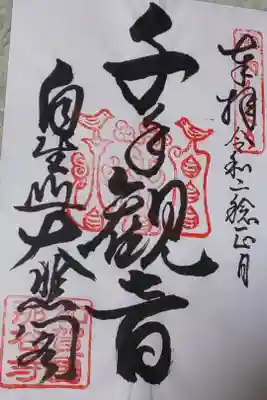 奉拝 令和二稔正月
千手観音
自生山大悲閣